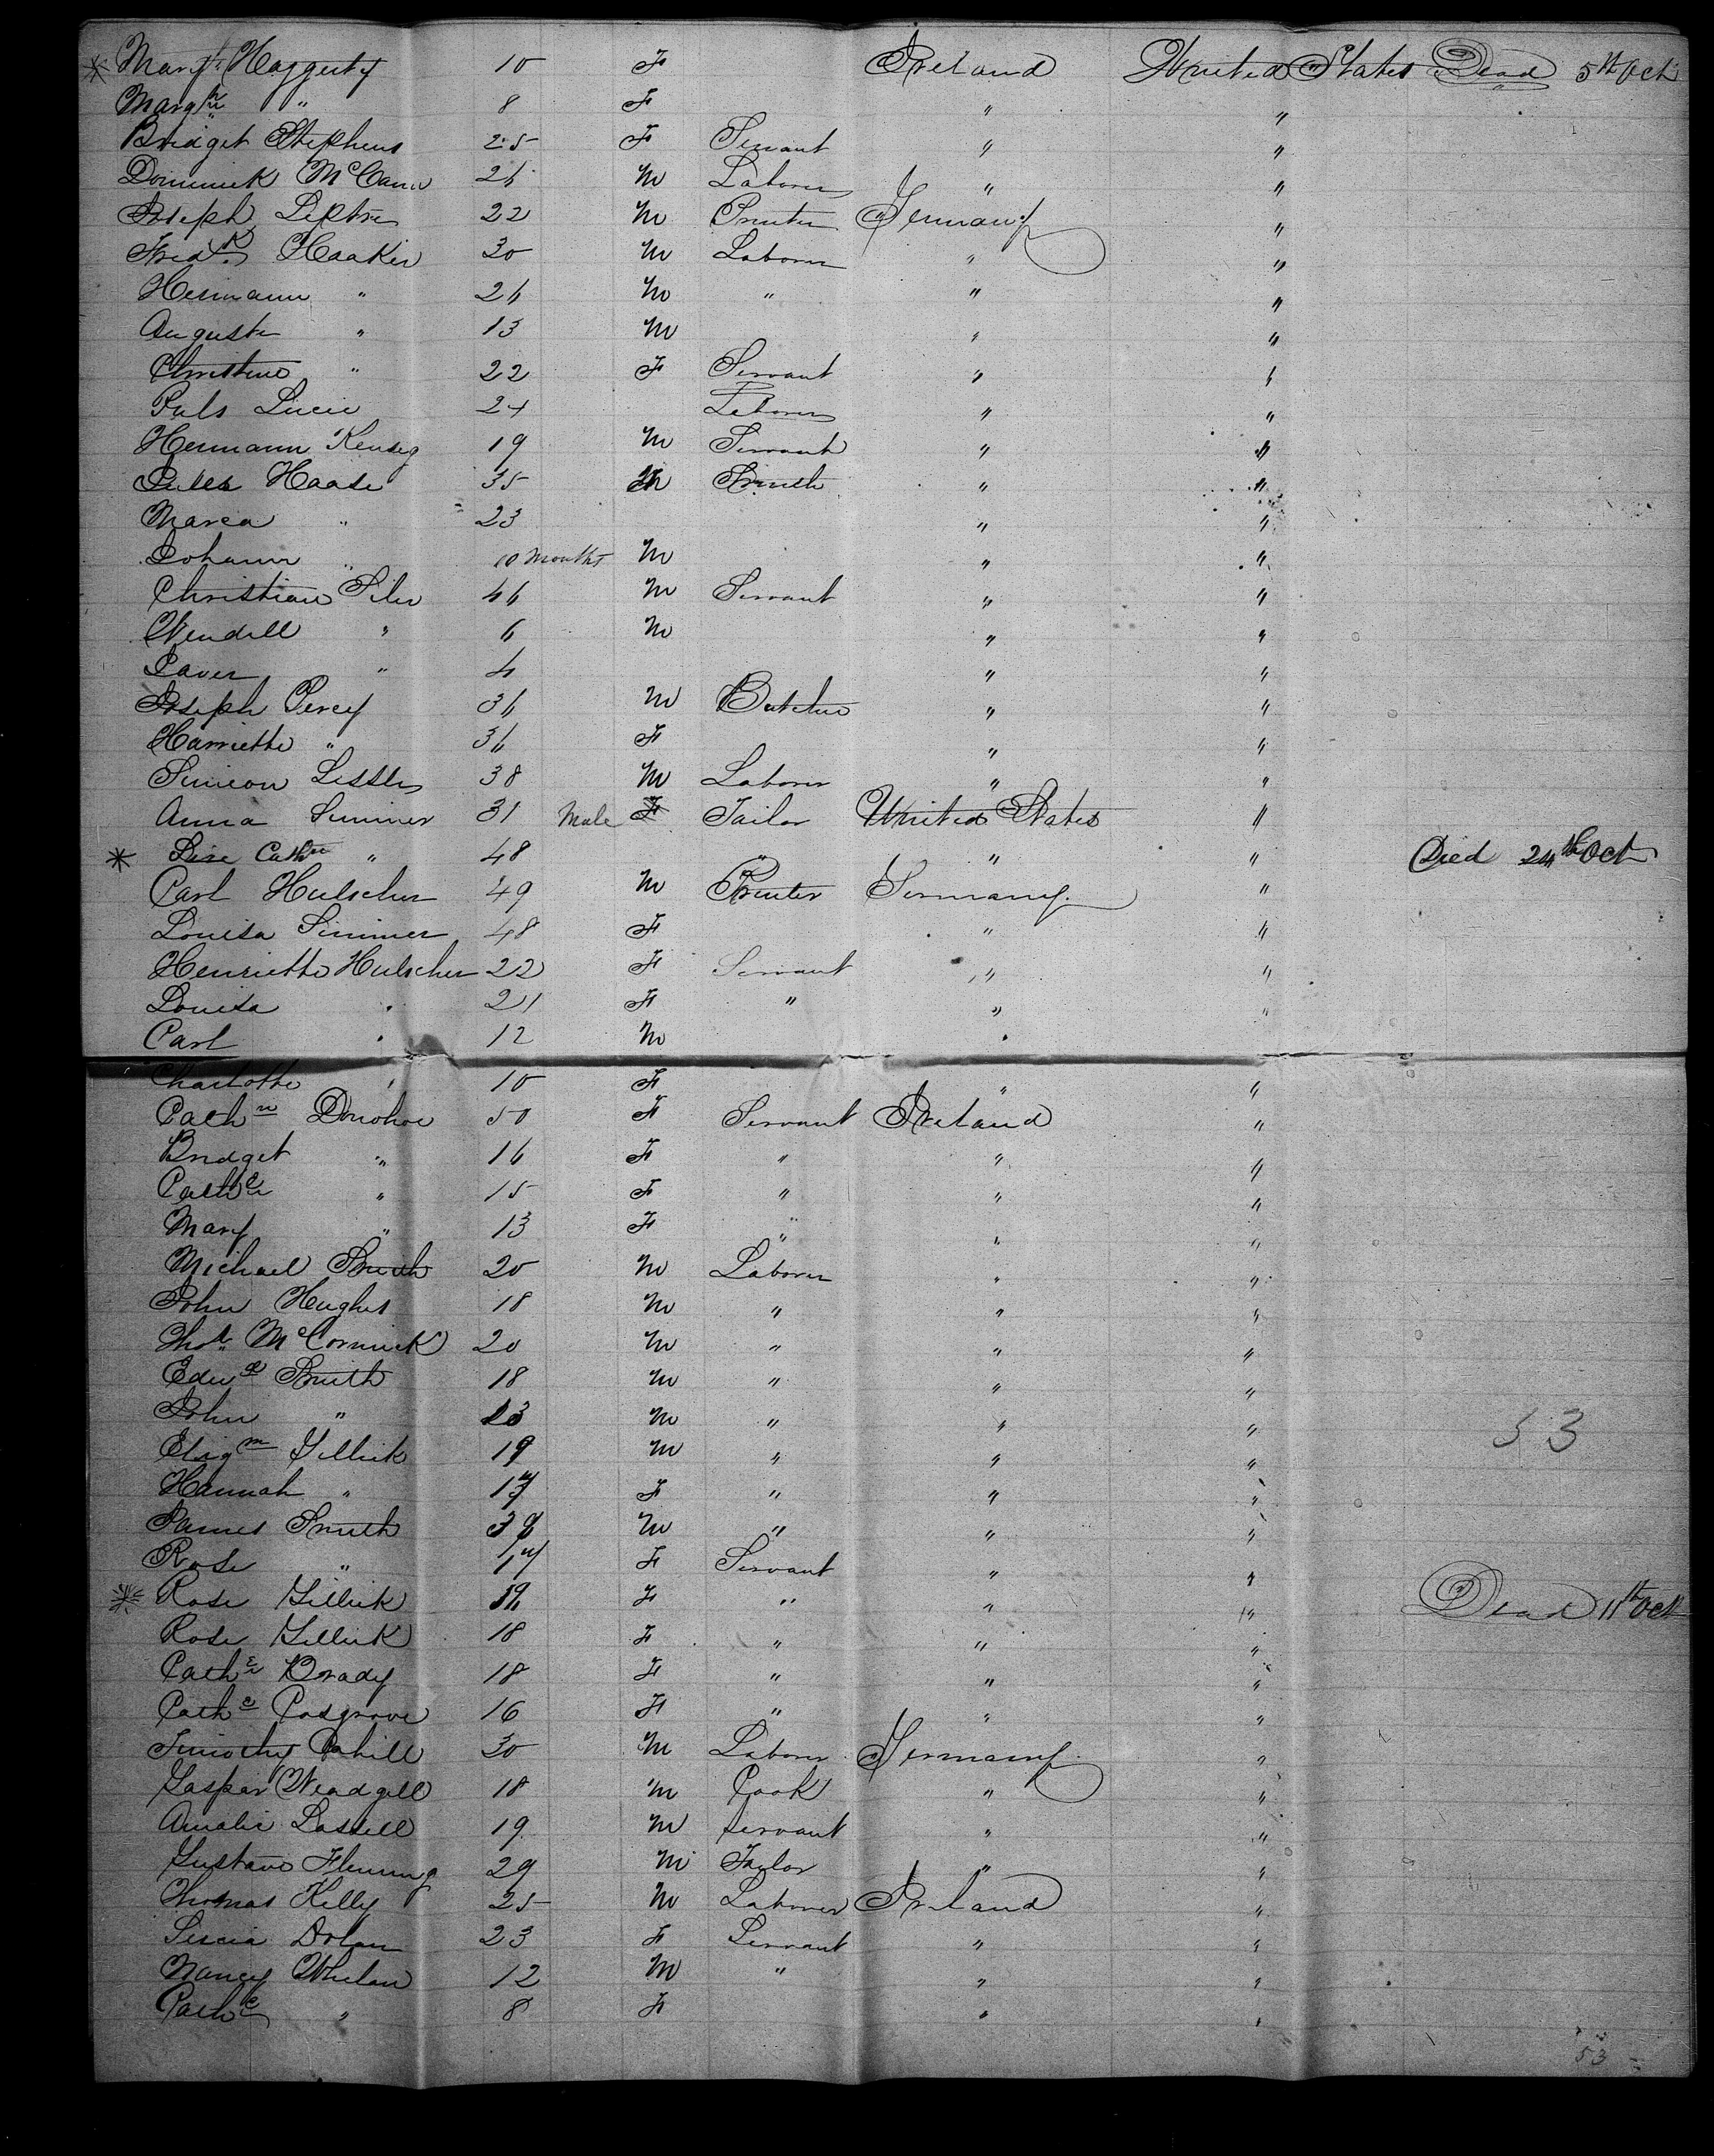 * Mary Haggerty 10 F Ireland United States Dead 5th Oct
Margt " 8 F " "
Bridget Stephens 25 F Servant " "
Dominick McCann 26 M Laborer " "
Joseph 22 M Printer Germany "
Fredk Haaker 30 M Laborer " "
Hermann " 26 M " " "
Auguste " 13 M " "
Christine " 22 F Servant " "
Puls Lucie 24 Laborer " "
Hermann 19 M Servant " "
Haase 35 M Smith " "
Marea " 23 " "
Johann " 10 Months M " "
Christian Siler 46 M Servant " "
Wendell " 6 M " "
" 4 " "
Joseph Percy 36 M Butcher " "
Harriette " 36 F " "
Simeon 38 M Laborer " "
Anna Simmer 31 Male F Tailor United States "
* Lise Cathn " 48 " " " Died 24th Oct
Carl Hulscher 49 M Printer Germany "
Louisa Simmer 48 F " "
Henriette Hulscher 22 F Servant " "
Louisa " 21 F " " "
Carl " 12 M "
Charlotte " 10 F " "
Cathn Donohoe 50 F Servant Ireland "
Bridget " 16 F " " "
Cathe " 15 F " " "
Mary " 13 F " " "
Michael Smith 20 M Laborer " "
John Hughes 18 M " " "
Thos McCormick 20 M " " "
Edwd Smith 18 M " " "
John " 13 M " " "
Gillick 19 M " " " 53
Hannah " 17 F " " "
James Smith M " " "
Rose " 17 F Servant " "
* Rose Gillick F " " " Dead 11th Oct
Rose Gillick 18 F " " "
Cathe Brady 18 F " " "
Cathe Cosgrove 16 F " " "
Timothy Cahill 30 M Laborer Germany "
Gaspar Weadgell 18 M Cook " "
Amalie Lassell 19 M Servant " "
Gustave Fleming 29 M Tailor " "
Thomas Kelly 25 M Laborer Ireland "
Dolan 23 F Servant " "
Nancy Whelan 12 M " " "
Cathe " 8 F " "
53